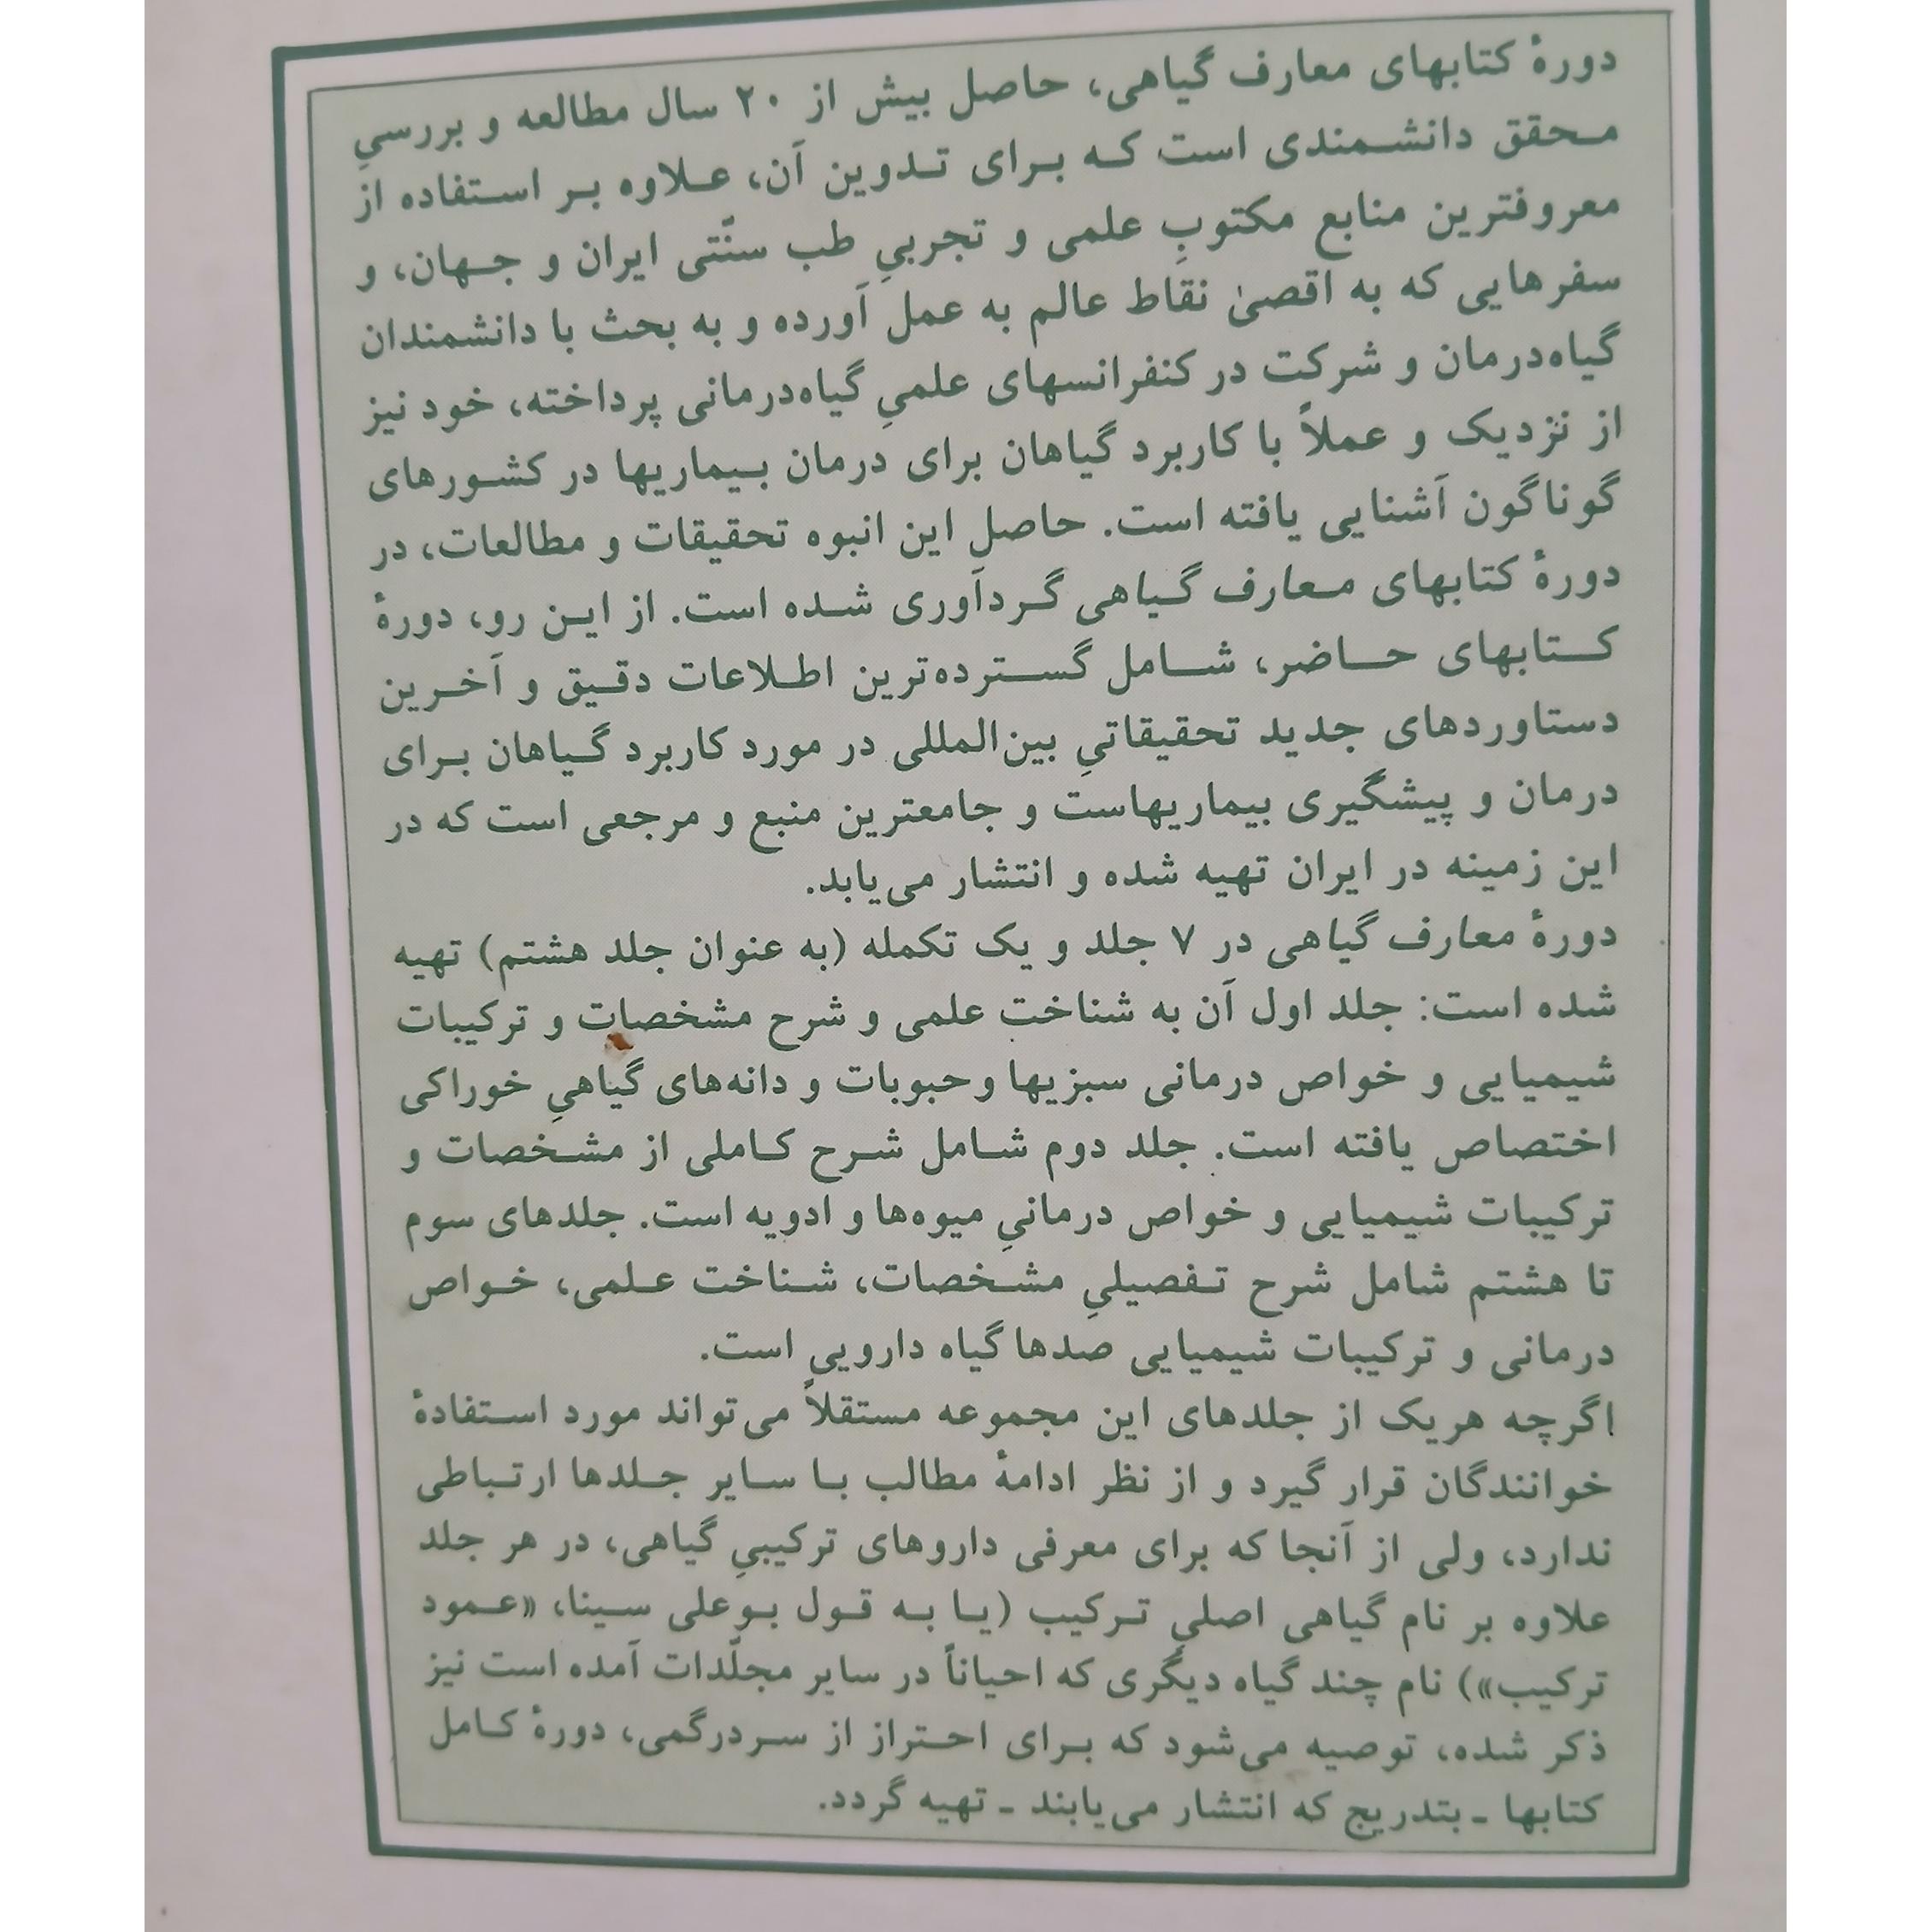 دورهٔ کتابهای معارف گیاهی، حاصل بیش از ۲۰ سال مطالعه و بررسیِ
محقق دانشمندی است که برای تدوین آن، علاوه بر استفاده از
معروفترین منابع مکتوبِ علمی و تجربیِ طب سنّتی ایران و جهان، و
سفرهایی که به اقصیٰ نقاط عالم به عمل آورده و به بحث با دانشمندان
گیاه‌درمان و شرکت در کنفرانسهای علمیِ گیاه‌درمانی پرداخته، خود نیز
از نزدیک و عملاً با کاربرد گیاهان برای درمان بیماریها در کشورهای
گوناگون آشنایی یافته است. حاصل این انبوه تحقیقات و مطالعات، در
دورهٔ کتابهای معارف گیاهی گردآوری شده است. از این رو، دورهٔ
کتابهای حاضر، شامل گسترده‌ترین اطلاعات دقیق و آخرین
دستاوردهای جدید تحقیقاتیِ بین‌المللی در مورد کاربرد گیاهان برای
درمان و پیشگیری بیماریهاست و جامعترین منبع و مرجعی است که در
این زمینه در ایران تهیه شده و انتشار می‌یابد.
دورهٔ معارف گیاهی در ۷ جلد و یک تکمله (به عنوان جلد هشتم) تهیه
شده است: جلد اول آن به شناخت علمی و شرح مشخصات و ترکیبات
شیمیایی و خواص درمانی سبزیها و حبوبات و دانه‌های گیاهیِ خوراکی
اختصاص یافته است. جلد دوم شامل شرح کاملی از مشخصات و
ترکیبات شیمیایی و خواص درمانیِ میوه‌ها و ادویه است. جلدهای سوم
تا هشتم شامل شرح تفصیلیِ مشخصات، شناخت علمی، خواص
درمانی و ترکیبات شیمیایی صدها گیاه دارویی است.
اگرچه هریک از جلدهای این مجموعه مستقلاً می‌تواند مورد استفادهٔ
خوانندگان قرار گیرد و از نظر ادامهٔ مطالب با سایر جلدها ارتباطی
ندارد، ولی از آنجا که برای معرفی داروهای ترکیبیِ گیاهی، در هر جلد
علاوه بر نام گیاهی اصلیِ ترکیب (یا به قول بوعلی سینا، «عمود
ترکیب») نام چند گیاه دیگری که احیاناً در سایر مجلّدات آمده است نیز
ذکر شده، توصیه می‌شود که برای احتراز از سردرگمی، دورهٔ کامل
کتابها ـ بتدریج که انتشار می‌یابند ـ تهیه گردد.